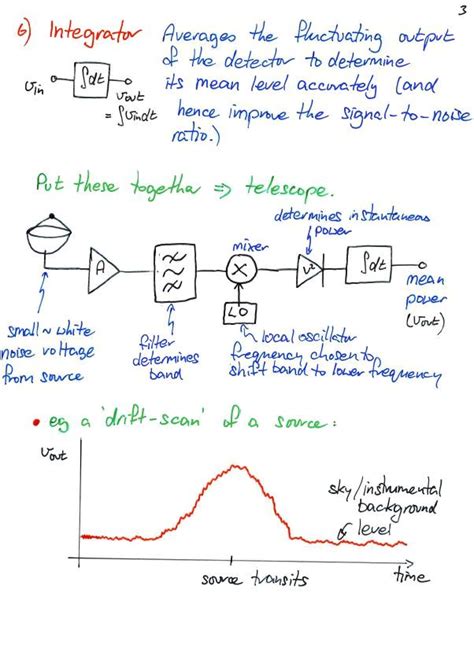 3
6) Integrator Averages the fluctuating output
of the detector to determine
its mean level accurately (and
hence improve the signal-to-noise
ratio.)
Vin ∫dt Vout
= ∫Vin dt
Put these together ⇒ telescope.
determines instantaneous
power
mixer
A
×
V²
∫dt
mean
power
(Vout)
LO
small ~ white
noise voltage
from source
filter
determines
band
local oscillator
frequency chosen to
shift band to lower frequency
• eg a 'drift-scan' of a source:
Vout
sky/instrumental
background
level
source transits
time